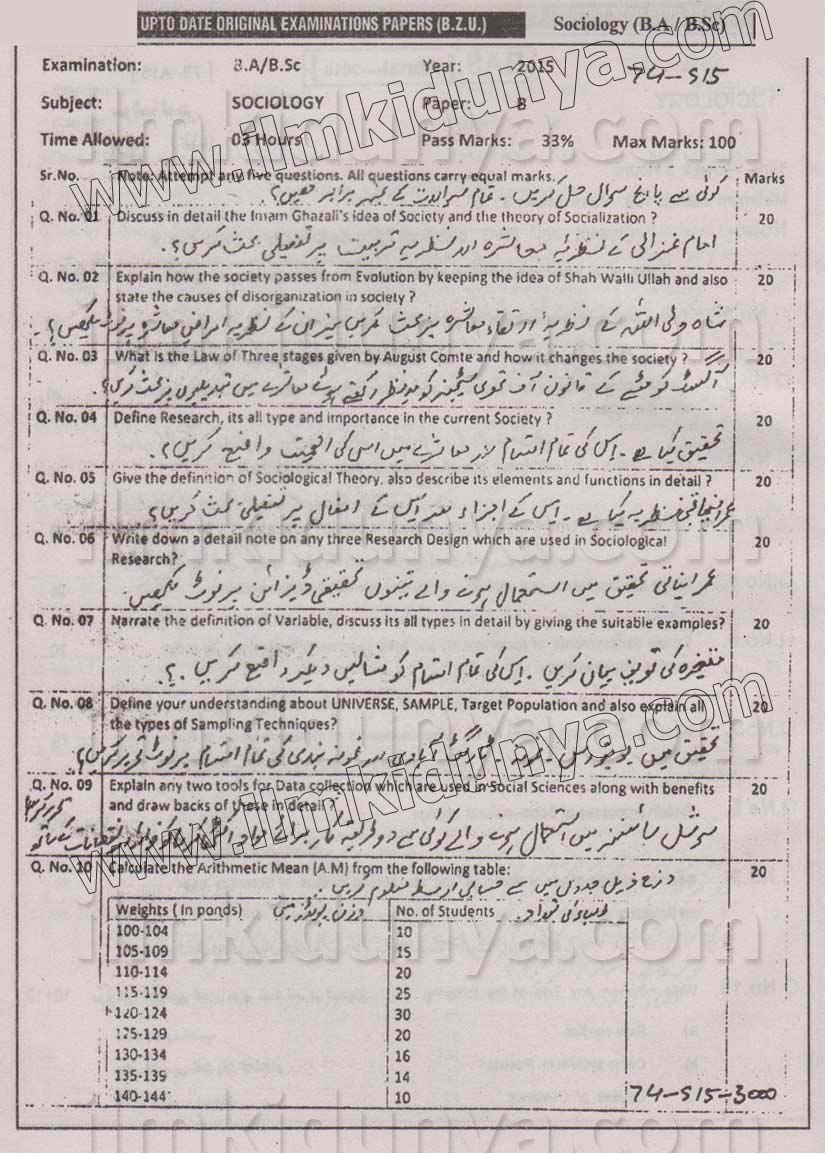 UPTO DATE ORIGINAL EXAMINATIONS PAPERS (B.Z.U.) Sociology (B.A / B.Sc)
Examination: B.A/B.Sc Year: 2015 74-S15
Subject: SOCIOLOGY Paper: B
Time Allowed: 03 Hours Pass Marks: 33% Max Marks: 100
Sr.No. Note: Attempt any five questions. All questions carry equal marks. Marks
کوئی سے پانچ سوال حل کریں۔ تمام سوالات کے نمبر برابر ہیں؟
Q. No. 01 Discuss in detail the Imam Ghazali's idea of Society and the theory of Socialization ? 20
امام غزالی کے نظریہ معاشرہ اور نظریہ تربیت پر تفصیلی بحث کریں؟
Q. No. 02 Explain how the society passes from Evolution by keeping the idea of Shah Walli Ullah and also 20
state the causes of disorganization in society ?
شاہ ولی اللہ کے نظریہ ارتقاء معاشرہ پر بحث کریں نیز ان کے نظریہ امراض معاشرہ پر نوٹ لکھیں؟
Q. No. 03 What is the Law of Three stages given by August Comte and how it changes the society ? 20
آگسٹ کومٹے کے قانون آف تھری سٹیجز کو مدنظر رکھتے ہوئے معاشرے میں تبدیلیوں پر بحث کریں؟
Q. No. 04 Define Research, its all type and importance in the current Society ? 20
تحقیق کیا ہے۔ اس کی تمام اقسام اور معاشرے میں اس کی اہمیت واضح کریں؟
Q. No. 05 Give the definition of Sociological Theory, also describe its elements and functions in detail ? 20
عمرانیاتی نظریہ کیا ہے۔ اس کے اجزاء اور اس کے افعال پر تفصیلی بحث کریں؟
Q. No. 06 Write down a detail note on any three Research Design which are used in Sociological 20
Research?
عمرانیاتی تحقیق میں استعمال ہونے والے تینوں تحقیقی ڈیزائن پر نوٹ لکھیں
Q. No. 07 Narrate the definition of Variable, discuss its all types in detail by giving the suitable examples? 20
متغیرہ کی تعریف بیان کریں۔ اس کی تمام اقسام کو مثالیں دیکر واضع کریں۔؟
Q. No. 08 Define your understanding about UNIVERSE, SAMPLE, Target Population and also explain all 20
the types of Sampling Techniques?
تحقیق میں یونیورس۔ نمونہ۔ ٹارگٹ آبادی اور نمونہ بندی کی تمام اقسام پر نوٹ تحریر کریں؟
Q. No. 09 Explain any two tools for Data collection which are used in Social Sciences along with benefits 20
and draw backs of these in detail ?
سوشل سائنسز میں استعمال ہونے والے کوئی سے دو طریقہ کار برائے مواد
Q. No. 10 Calculate the Arithmetic Mean (A.M) from the following table: 20
درج ذیل جدول میں سے حسابی اوسط معلوم کریں۔
Weights (In ponds) وزن پونڈز میں No. of Students طلباء کی تعداد
100-104 10
105-109 15
110-114 20
115-119 25
120-124 30
125-129 20
130-134 16
135-139 14
140-144 10 74-S15-3000
www.ilmkidunya.com
www.ilmkidunya.com
ilmkidunya.com